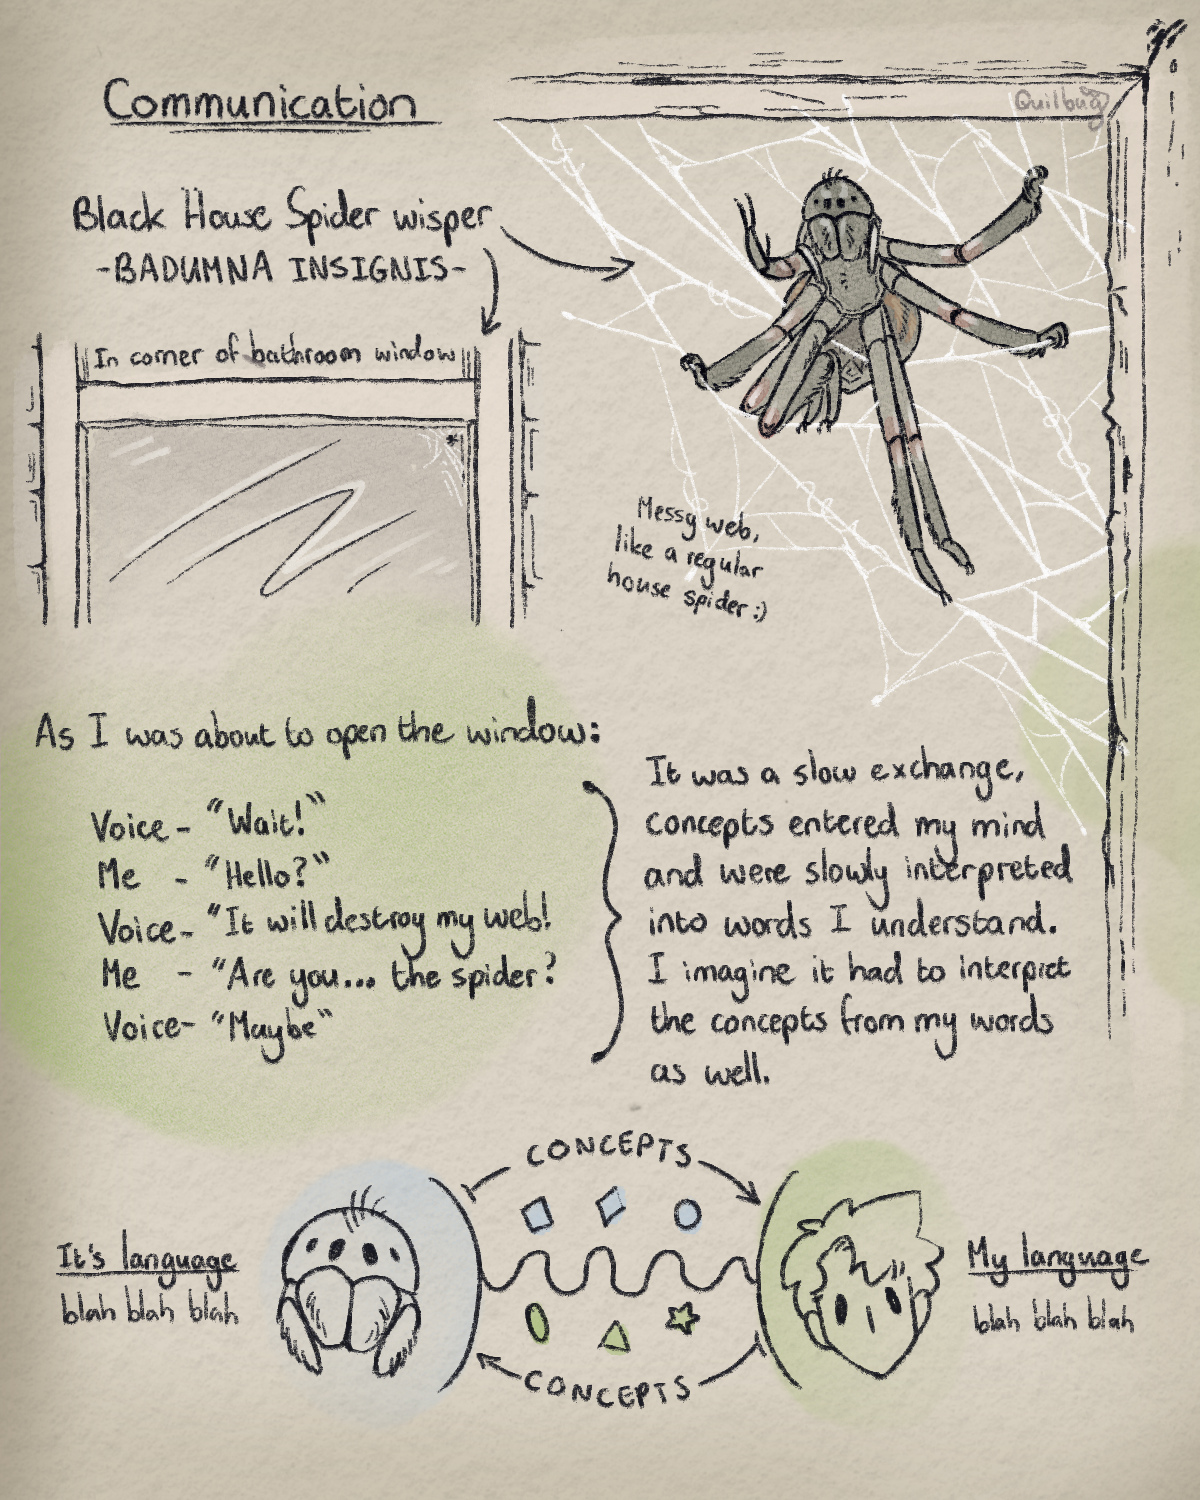 Communication
Quilbug
Black House Spider wisper
-BADUMNA INSIGNIS-
In corner of bathroom window
Messy web,
like a regular
house spider :)
As I was about to open the window:
Voice - "Wait!"
Me - "Hello?"
Voice - "It will destroy my web!
Me - "Are you... the spider?
Voice - "Maybe"
It was a slow exchange,
concepts entered my mind
and were slowly interpreted
into words I understand.
I imagine it had to interpret
the concepts from my words
as well.
CONCEPTS
It's language
blah blah blah
My language
blah blah blah
CONCEPTS